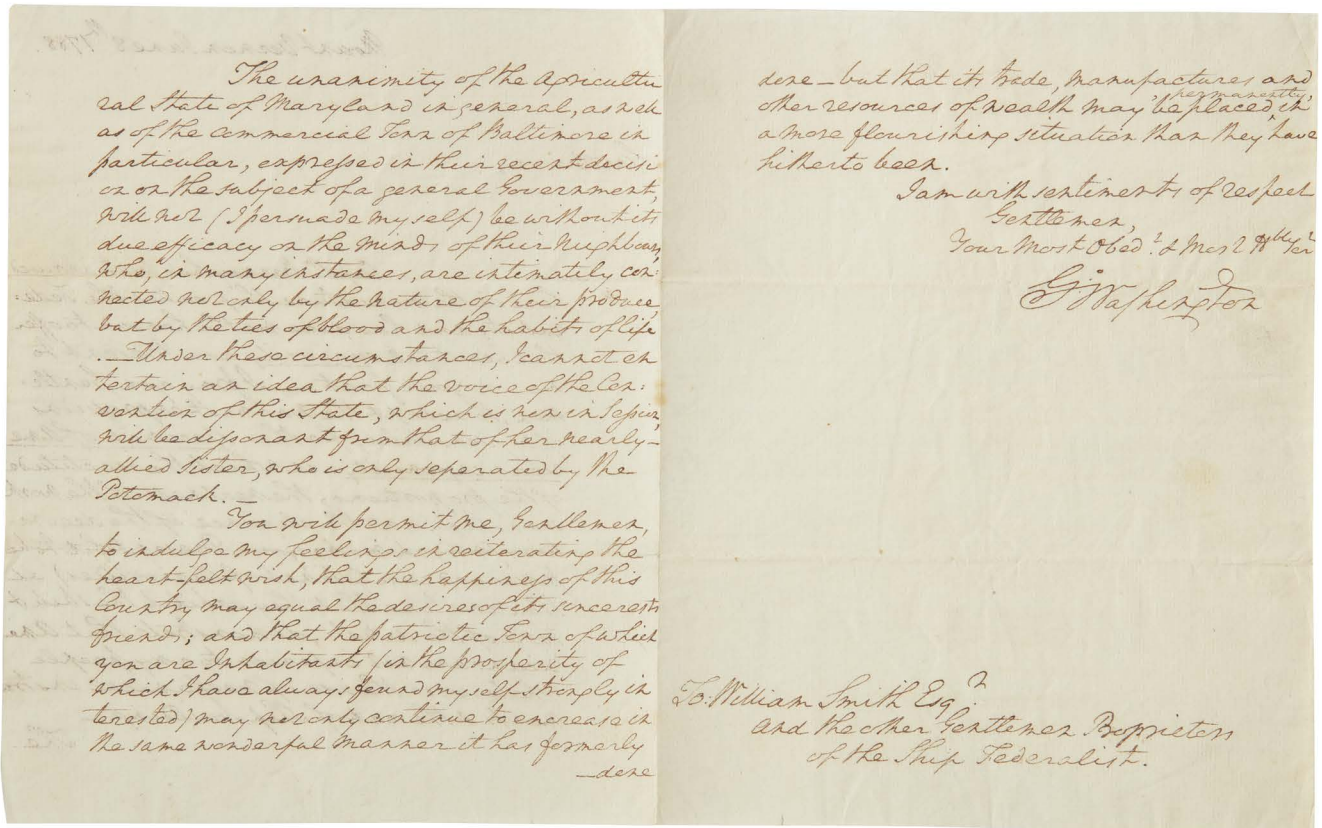 The unanimity of the Agricultu
ral State of Maryland in general, as well
as of the commercial Town of Baltimore in
particular, expressed in their recent decisi
on on the subject of a general Government,
will not (I persuade myself) be without its
due efficacy on the minds of their Neighbours,
who, in many instances, are intimately con:
nected not only by the nature of their produce,
but by the ties of blood and the habits of life
.—Under these circumstances, I cannot en
tertain an idea that the voice of the Con:
vention of this State, which is now in Session,
will be dissonant from that of her nearly-
allied sister, who is only seperated by the
Potomack.—
You will permit me, Gentlemen,
to indulge my feelings in reiterating the
heart-felt wish, that the happiness of this
Country may equal the desires of its sincerests
friends; and that the patriotic Town of which
you are Inhabitants (in the prosperity of
which I have always found myself strongly in
terested) may not only continue to encrease in
the same wonderful manner it has formerly
—done
done—but that its trade, manufactures and
permanently,
other resources of wealth may be placed, in
a more flourishing situation than they have
hitherto been.
I am with sentiments of respect
Gentlemen,
Your Most Obedt & Most Hble Ser
Go Washington
To: William Smith Esqr
and the other Gentlemen Proprietors
of the Ship Federalist.